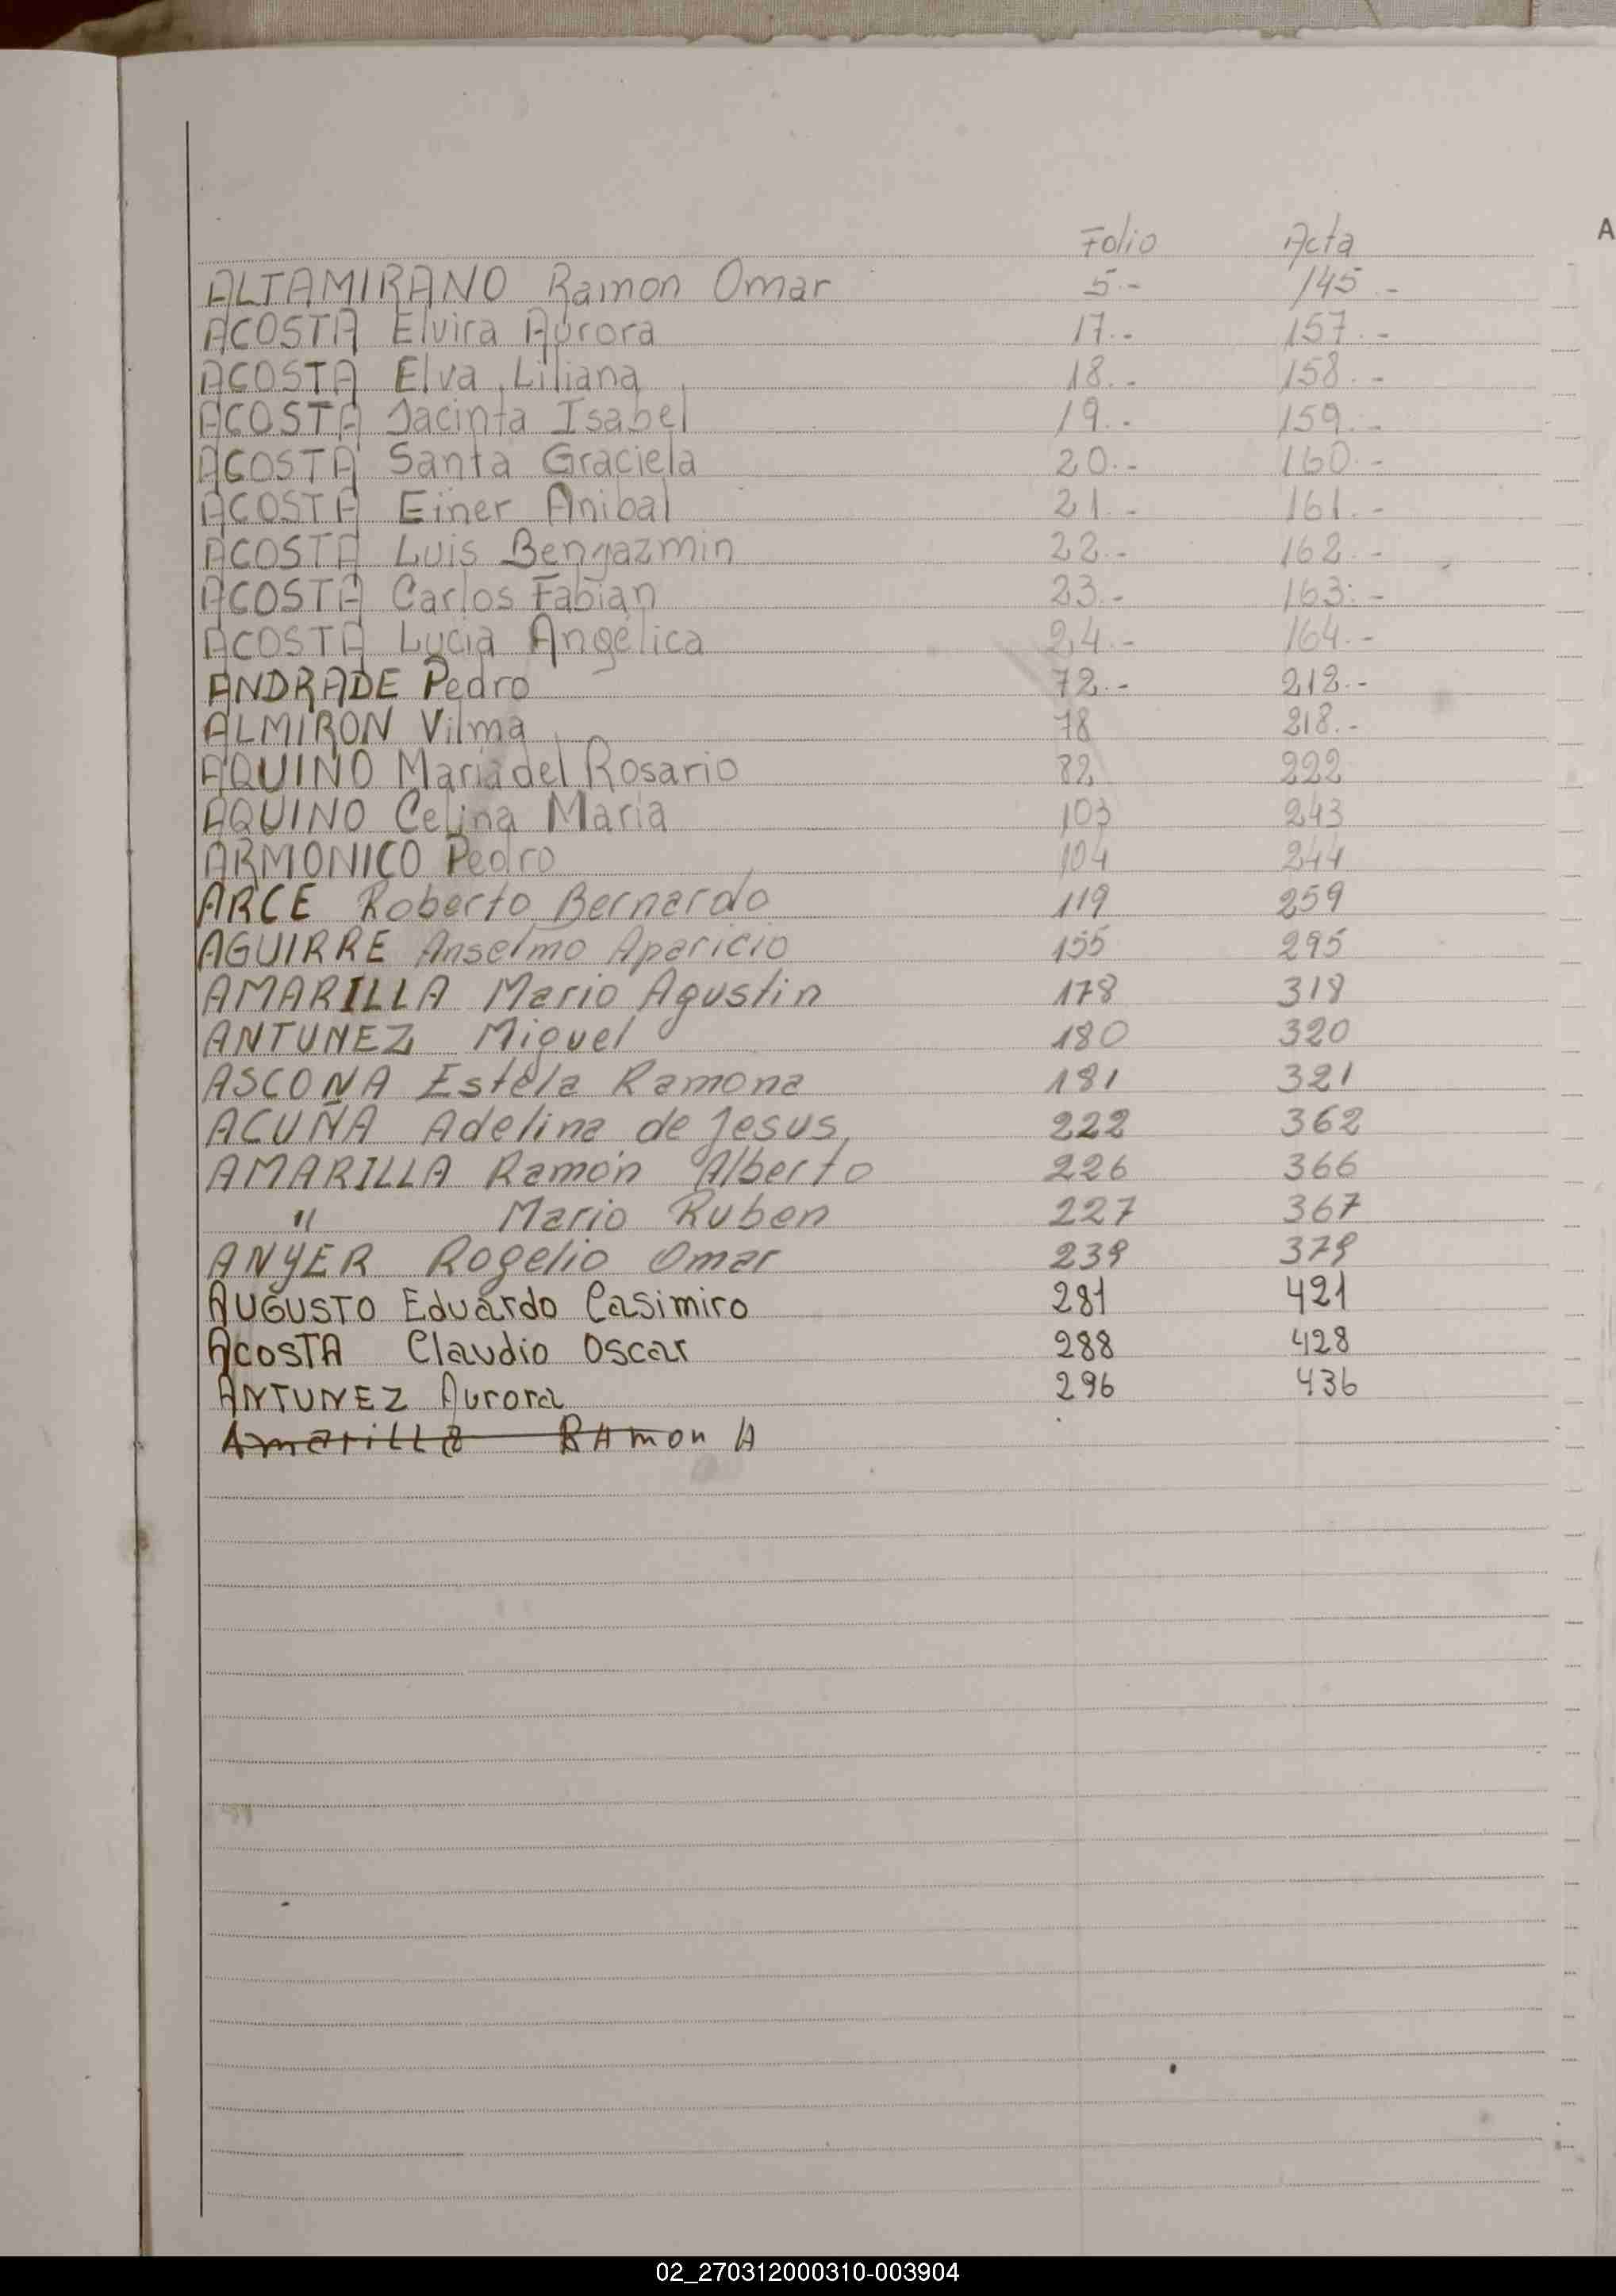 A
Folio Acta
ALTAMIRANO Ramon Omar 5.- 145.-
ACOSTA Elvira Aurora 17.- 157.-
ACOSTA Elva Liliana 18.- 158.-
ACOSTA Jacinta Isabel 19.- 159.-
ACOSTA Santa Graciela 20.- 160.-
ACOSTA Einer Anibal 21.- 161.-
ACOSTA Luis Bengazmin 22.- 162.-
ACOSTA Carlos Fabian 23.- 163.-
ACOSTA Lucia Angélica 24.- 164.-
ANDRADE Pedro 72.- 212.-
ALMIRON Vilma 78 218.-
AQUINO Maria del Rosario 82 222
AQUINO Celina Maria 103 243
ARMONICO Pedro 104 244
ARCE Roberto Bernardo 119 259
AGUIRRE Anselmo Aparicio 155 295
AMARILLA Mario Agustin 178 318
ANTUNEZ Miguel 180 320
ASCONA Estela Ramona 181 321
ACUÑA Adelina de Jesus 222 362
AMARILLA Ramón Alberto 226 366
" Mario Ruben 227 367
ANYER Rogelio Omar 239 379
AUGUSTO Eduardo Casimiro 281 421
AcosTA Claudio Oscar 288 428
ANTUNEZ Aurora 296 436
AmarilLa RAmon A
02_270312000310-003904